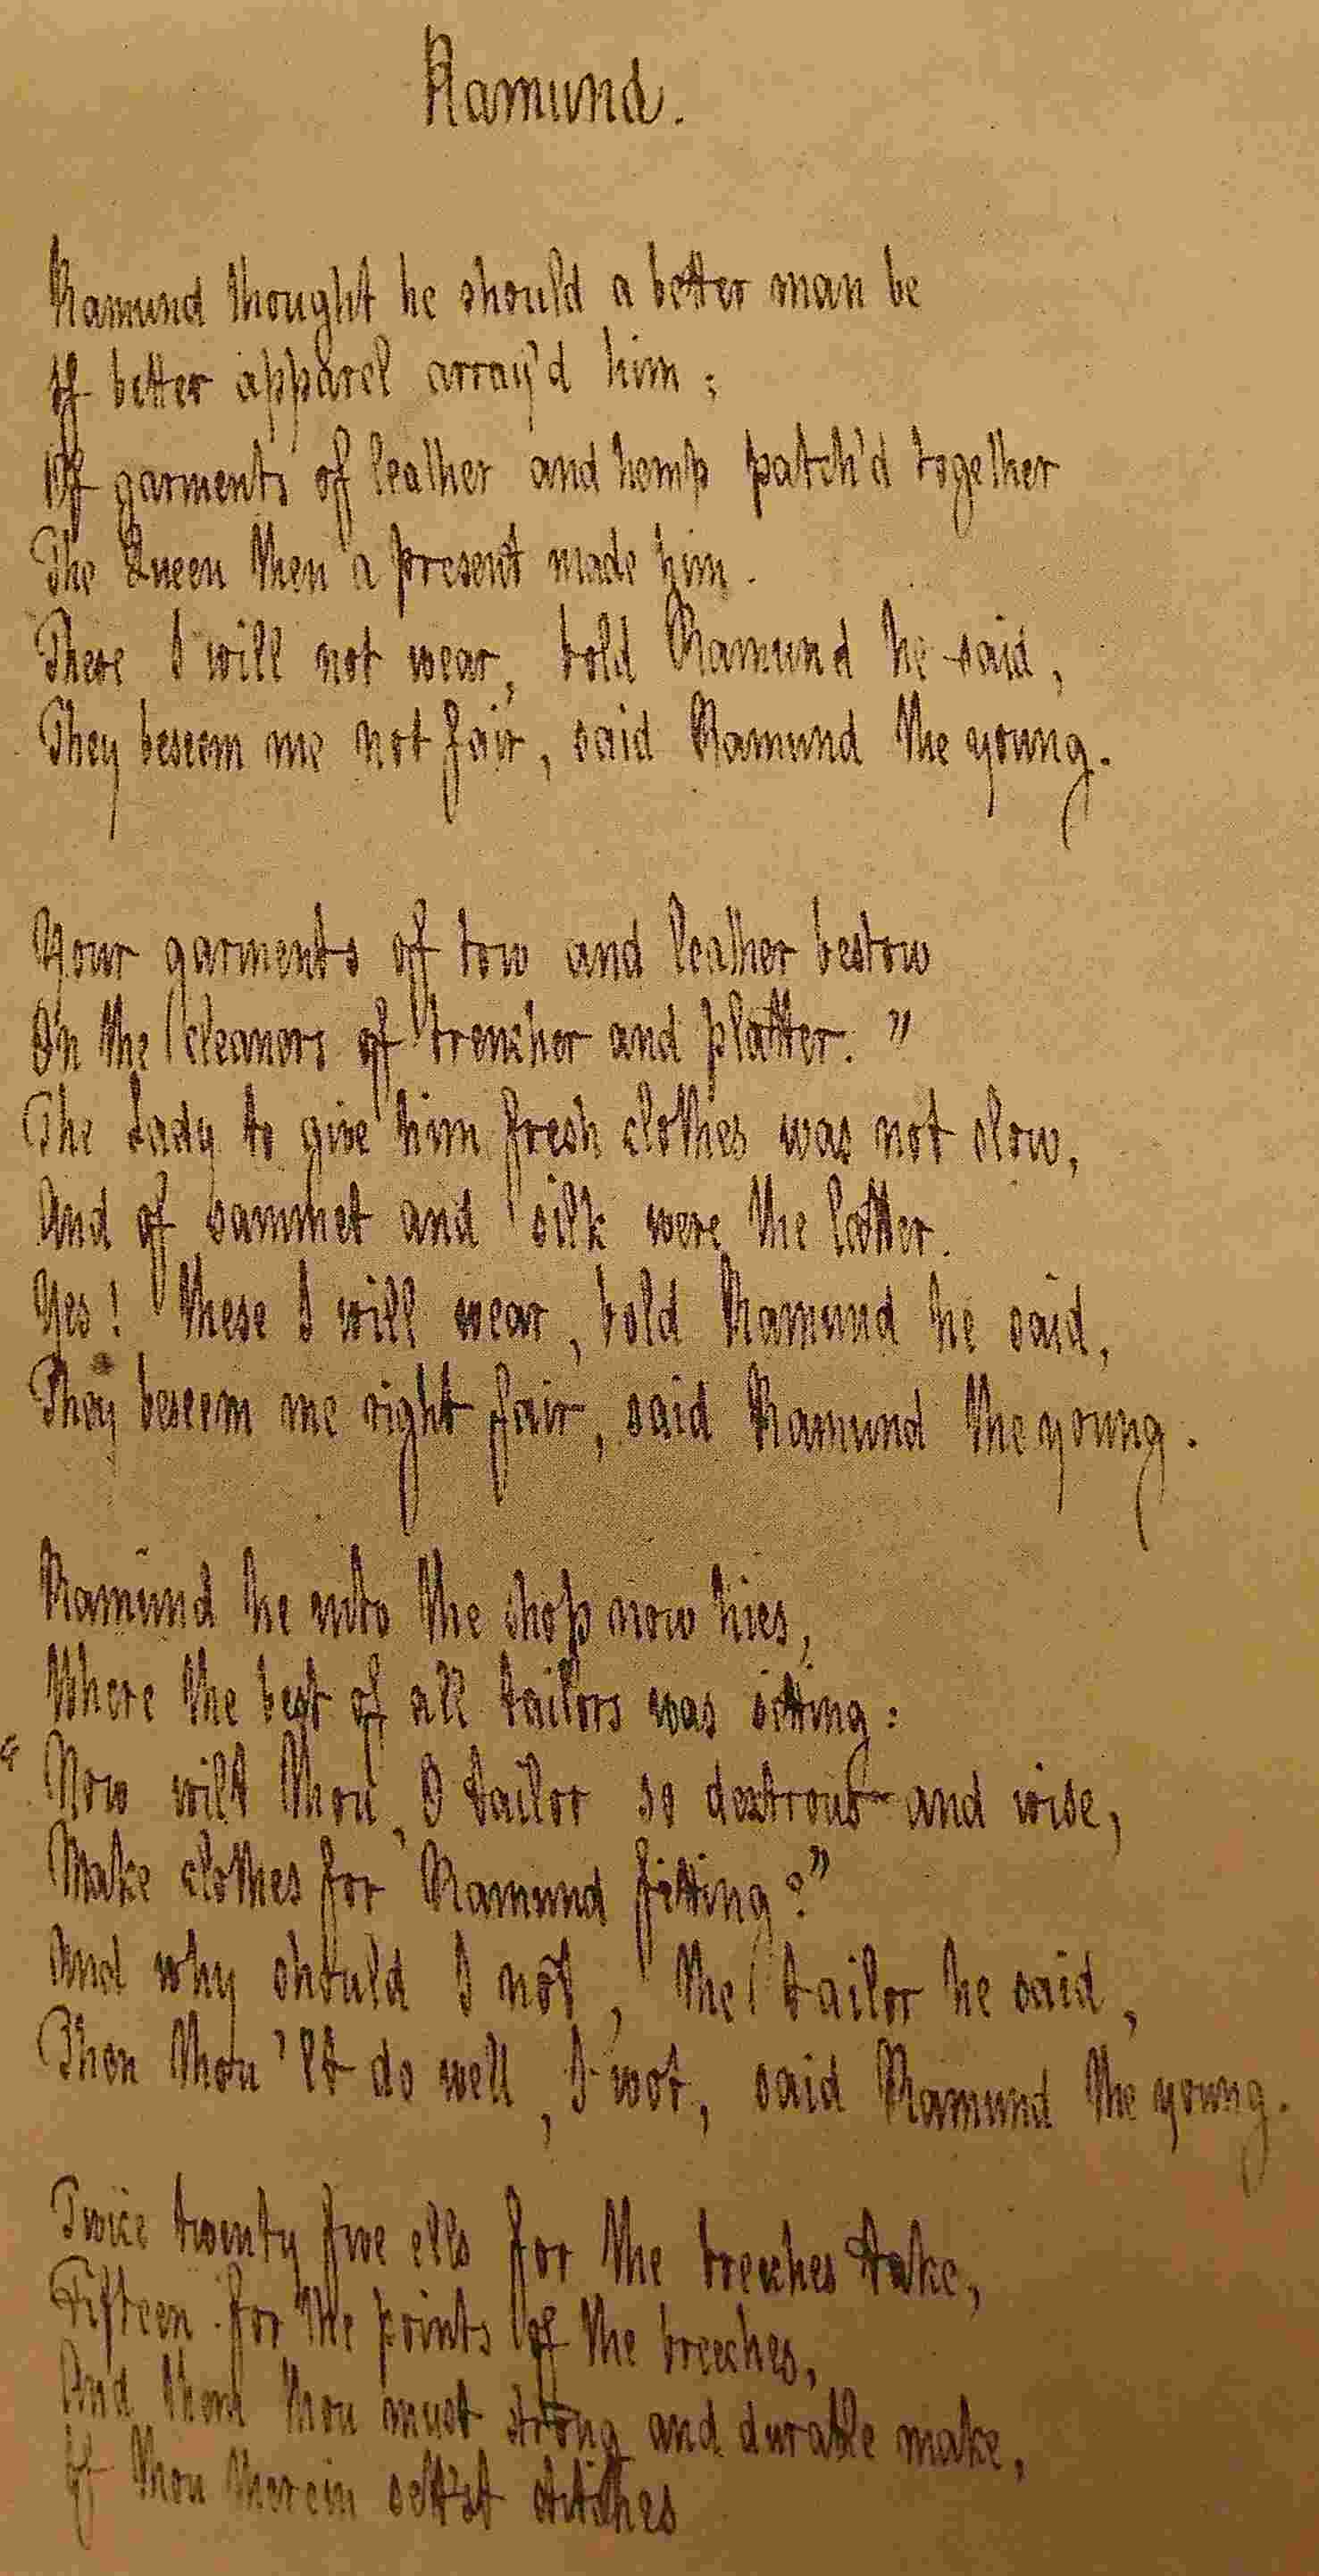 Ramund.
Ramund thought he should a better man be
If better apparel array'd him;
Of garments of leather and hemp patch'd together
The Queen then a present made him.
These I will not wear, bold Ramund he said,
They beseem me not fair, said Ramund the young.
Your garments of tow and leather bestow
On the cleaners of trencher and platter."
The Lady to give him fresh clothes was not slow,
And of sammet and silk were the latter.
Yes! these I will wear, bold Ramund he said,
They beseem me right fair, said Ramund the young.
Ramund he into the shop now hies,
Where the best of all tailors was sitting:
"Now wilt thou, O tailor so dextrous and wise,
Make clothes for Ramund fitting?"
And why should I not, the tailor he said,
Then thou'lt do well, I wot, said Ramund the young.
Twice twenty five ells for the breeches take,
Fifteen for the points of the breeches,
And them thou must strong and durable make,
If thou therein sett'st stitches